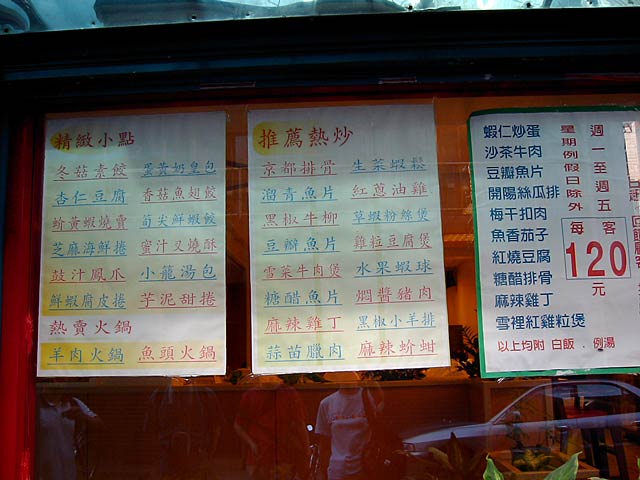 精緻小點
冬菇素餃 蛋黃奶皇包
杏仁豆腐 香菇魚翅餃
蚧黃蝦燒賣 筍尖鮮蝦餃
芝麻海鮮捲 蜜汁叉燒酥
鼓汁鳳爪 小籠湯包
鮮蝦腐皮捲 芋泥甜捲
熱賣火鍋
羊肉火鍋 魚頭火鍋
推薦熱炒
京都排骨 生菜蝦鬆
溜青魚片 紅蔥油雞
黑椒牛柳 草蝦粉絲煲
豆瓣魚片 雞粒豆腐煲
雪菜牛肉煲 水果蝦球
糖醋魚片 燜醬豬肉
麻辣雞丁 黑椒小羊排
蒜苗臘肉 麻辣蚧蚶
蝦仁炒蛋
沙茶牛肉
豆瓣魚片
開陽絲瓜排
梅干扣肉
魚香茄子
紅燒豆腐
糖醋排骨
麻辣雞丁
雪裡紅雞粒煲
以上均附 白飯．例湯
週一至週五
星期例假日除外
每客
120
元